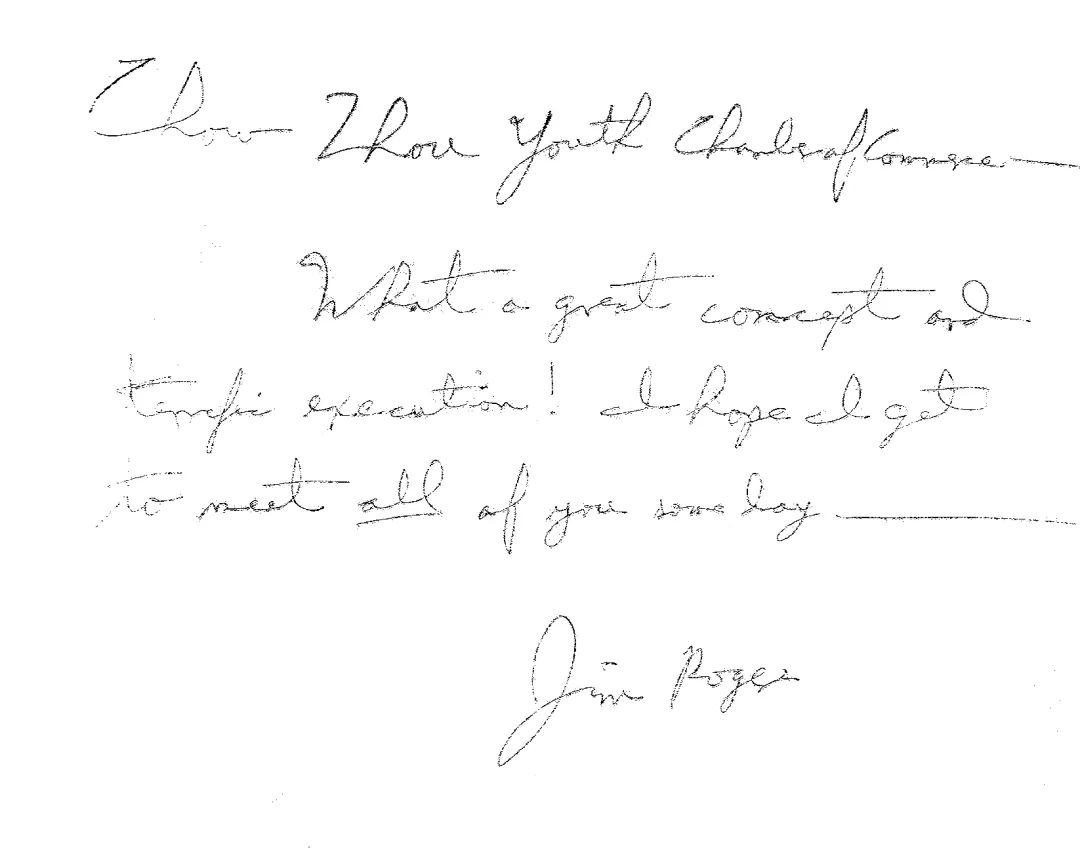 Zhou Youth Chamber of Commerce —
What a great concept and
terrific execution! I hope I get
to meet all of you some day —
Jim Rogers